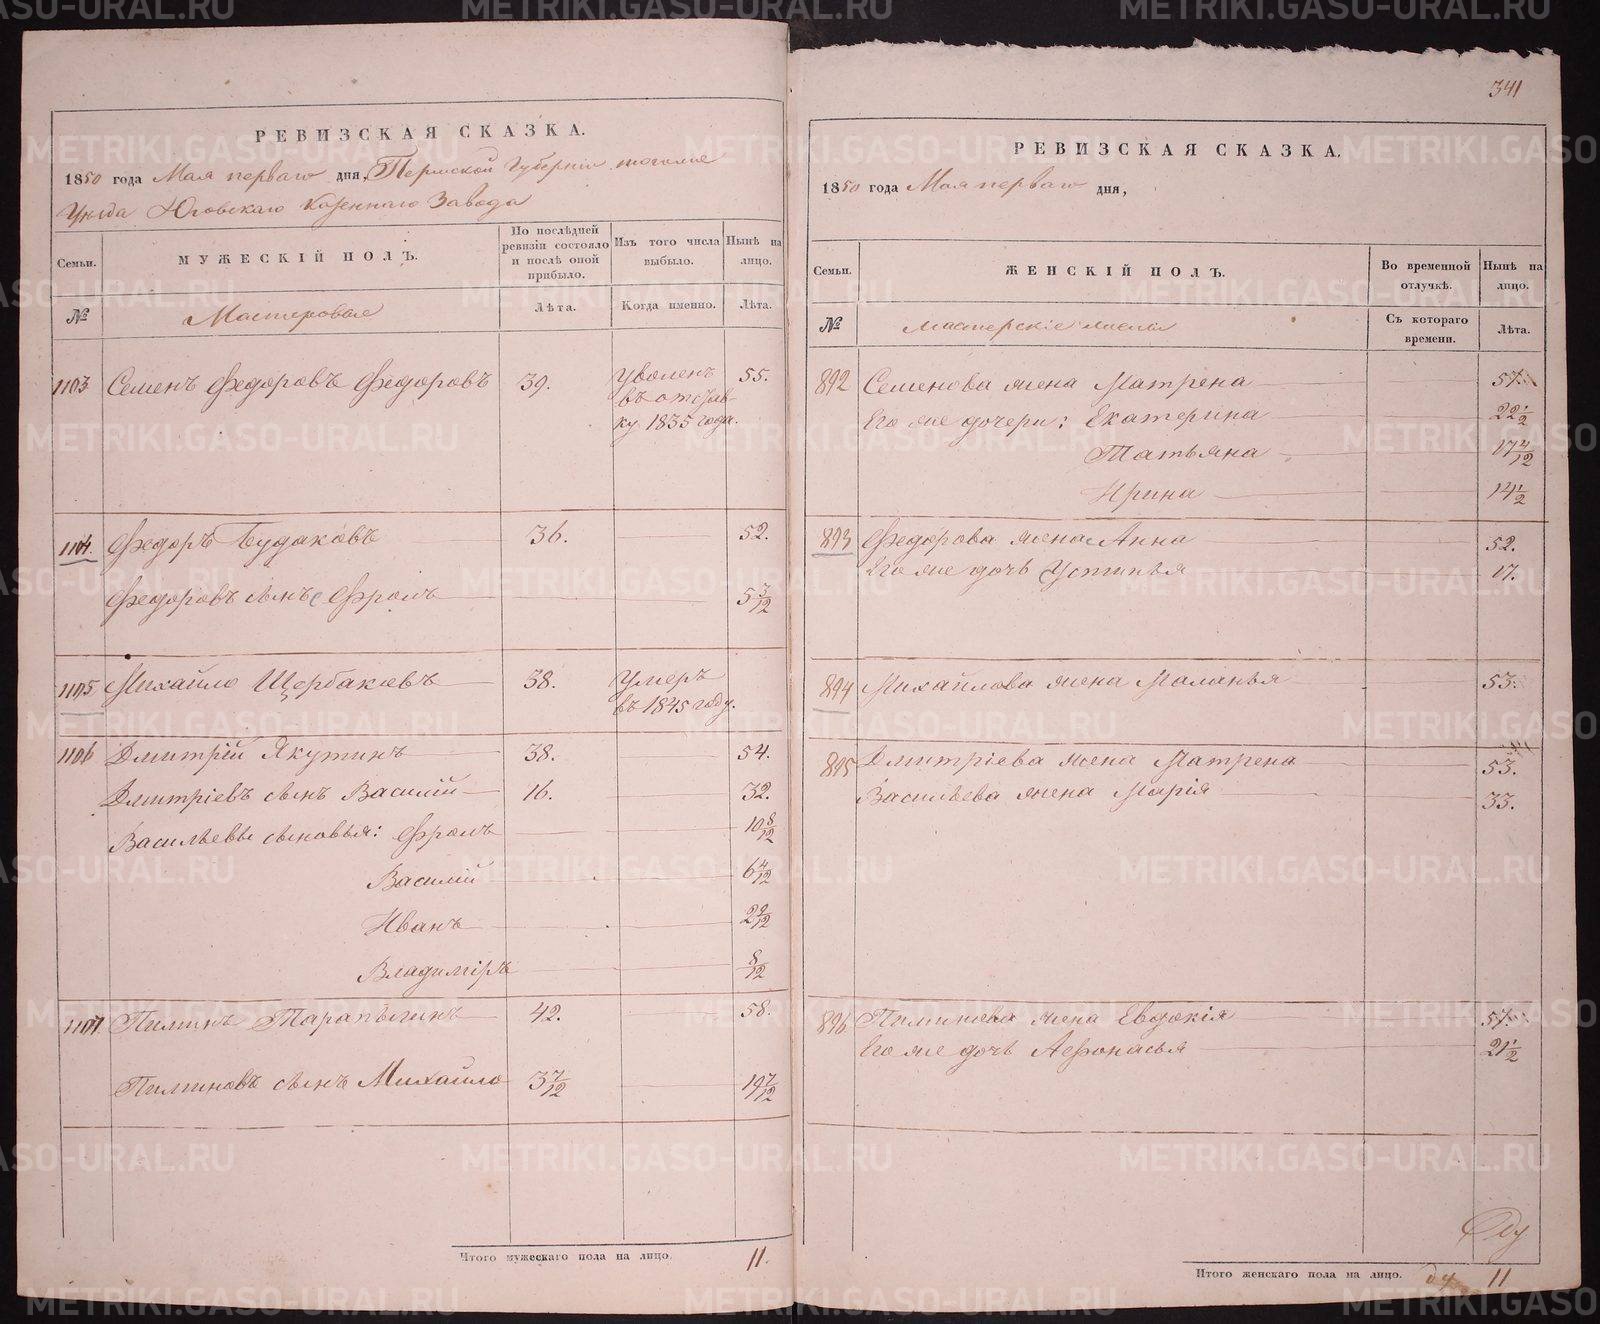 РЕВИЗСКАЯ СКАЗКА.
1850 года Мая перваго дня, Пермской Губернiи тогоже
Уѣзда Юговскаго Казеннаго Завода
Семьи.
МУЖЕСКІЙ ПОЛЪ.
По послѣдней ревизіи состояло и послѣ оной прибыло.
Изъ того числа выбыло.
Нынѣ на лицо.
№
Мастеровые
Лѣта.
Когда именно.
Лѣта.
1103 Семенъ Федоровъ Федоровъ 39. Уволенъ 55.
въ отстав-
ку 1835 года.
1104. Федоръ Будаковъ 36. 52.
Федоровъ сынъ Фролъ 5 3/12
1105 Михайло Щербаковъ 38. Умеръ
въ 1845 году.
1106 Дмитрій Якутинъ 38. 54.
Дмитріевъ сынъ Василій 16. 32.
Васильевы сыновья: Фролъ 10 8/12
Василій 6 4/12
Иванъ 2 9/12
Владиміръ 8/12
1107 Пиминъ Тарапыгинъ 42. 58.
Пиминовъ сынъ Михайло 3 7/12 19 7/12
Итого мужескаго пола на лицо. 11.
341
РЕВИЗСКАЯ СКАЗКА.
1850 года Мая перваго дня,
Семьи.
ЖЕНСКІЙ ПОЛЪ.
Во временной отлучкѣ.
Нынѣ на лицо.
№
мастерскіе жены
Съ котораго времени.
Лѣта.
892 Семенова жена Матрена 57.
Его же дочери: Екатерина 22 1/2
Татьяна 17 4/12
Ирина 14 1/2
893 Федорова жена Анна 52.
Его же дочь Устинья 17.
894 Михайлова жена Маланья 53.
895 Дмитріева жена Матрена 53.
Васильева жена Марія 33.
896 Пиминова жена Евдокія 57.
Его же дочь Афонасья 21 1/2
Итого женскаго пола на лицо. 11
METRIKI.GASO-URAL.RU